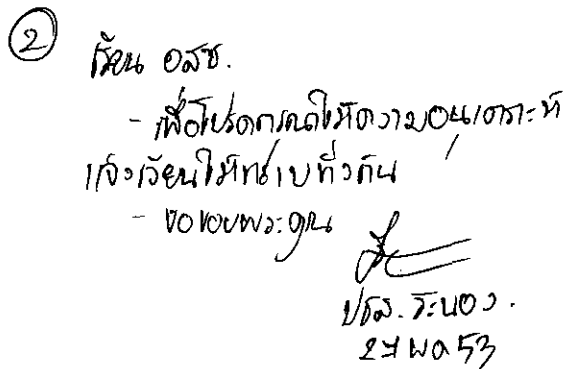 ②
เรียน อสช.
- เพื่อโปรดกรุณาให้ความอนุเคราะห์
แจ้งเวียนให้ทราบทั่วกัน
- ขอขอบพระคุณ
ปชส. ระนอง.
27 พค 53